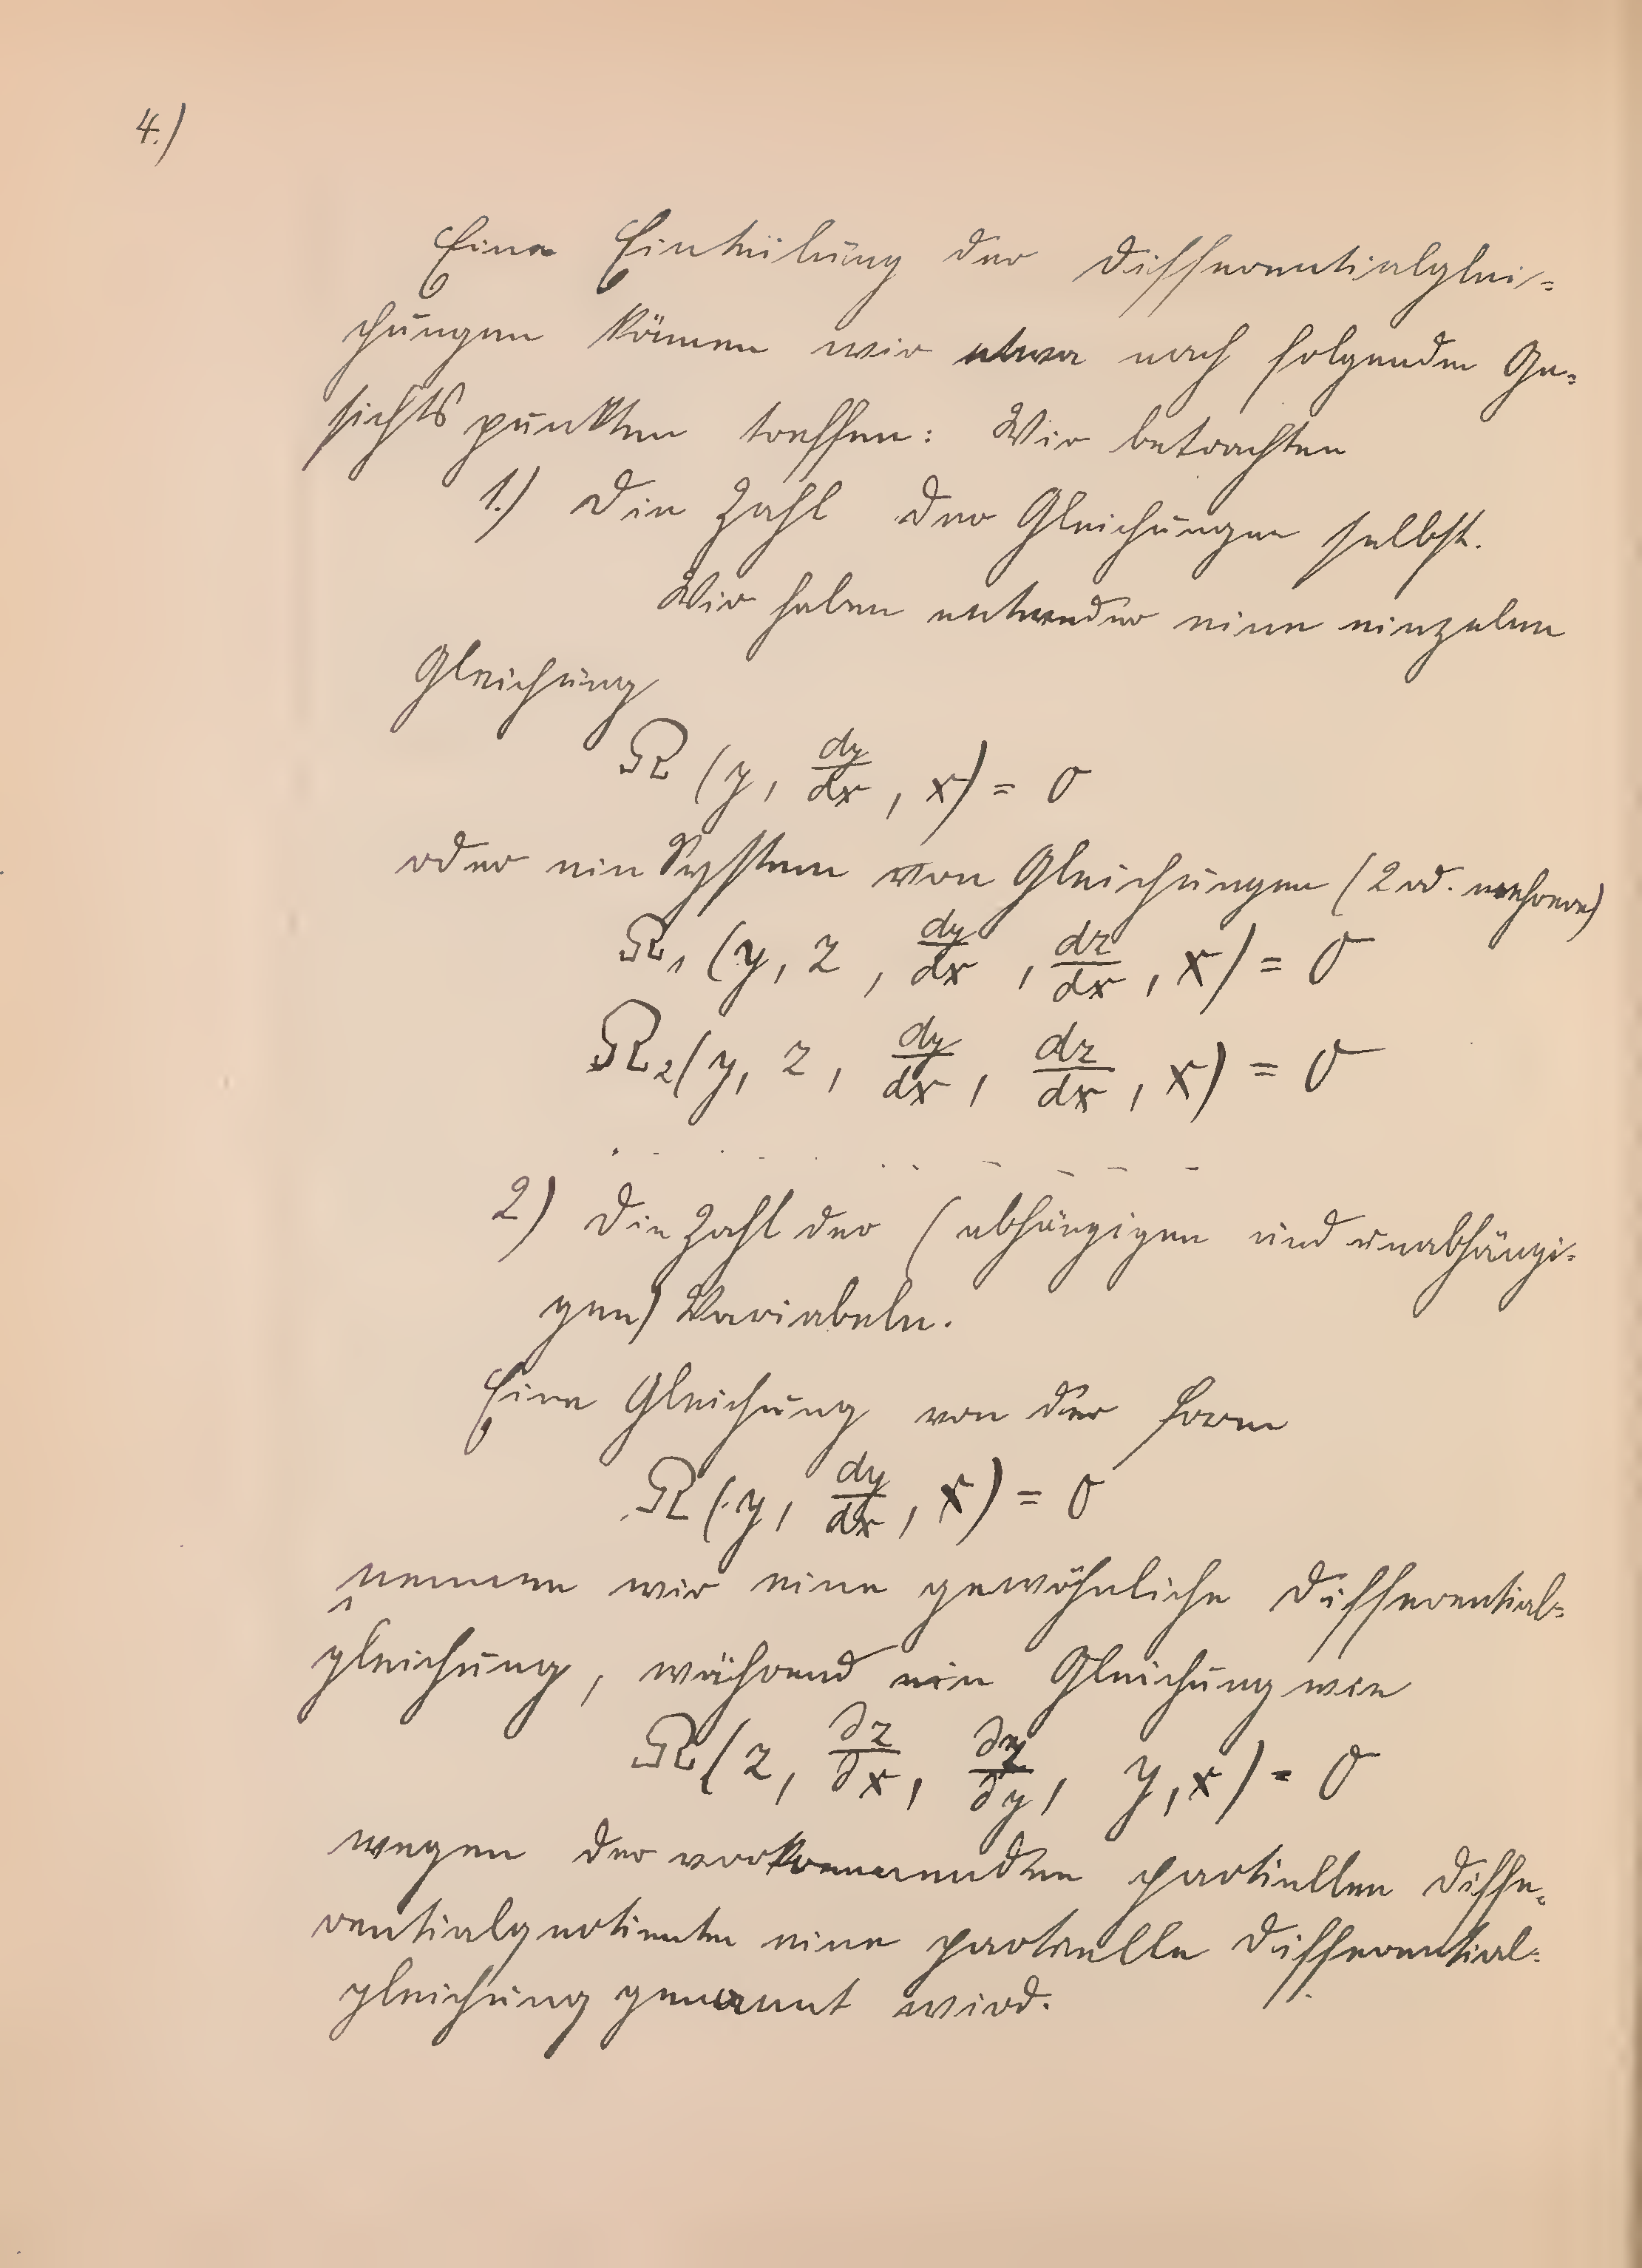 4.)
Eine Einteilung der Differentialglei-
chungen können wir etwa nach folgenden Ge-
sichtspunkten treffen: Wir betrachten
1.) Die Zahl der Gleichungen selbst.
Wir haben entweder eine einzelne
Gleichung
Ω (y, dy/dx, x) = 0
oder ein System von Gleichungen (2 od. mehrere)
Ω₁ (y, z, dy/dx, dz/dx, x) = 0
Ω₂ (y, z, dy/dx, dz/dx, x) = 0
. . . . . . . - - - -
2) Die Zahl der (abhängigen und unabhängi-
gen) Variabeln.
Eine Gleichung von der Form
Ω (y, dy/dx, x) = 0
nennen wir eine gewöhnliche Differential-
gleichung, während ein Gleichung wie
Ω (z, ∂z/∂x, ∂z/∂y, y, x) = 0
wegen der vorkommenden partiellen Diffe-
rentialquotienten eine partielle Differential-
gleichung genannt wird.